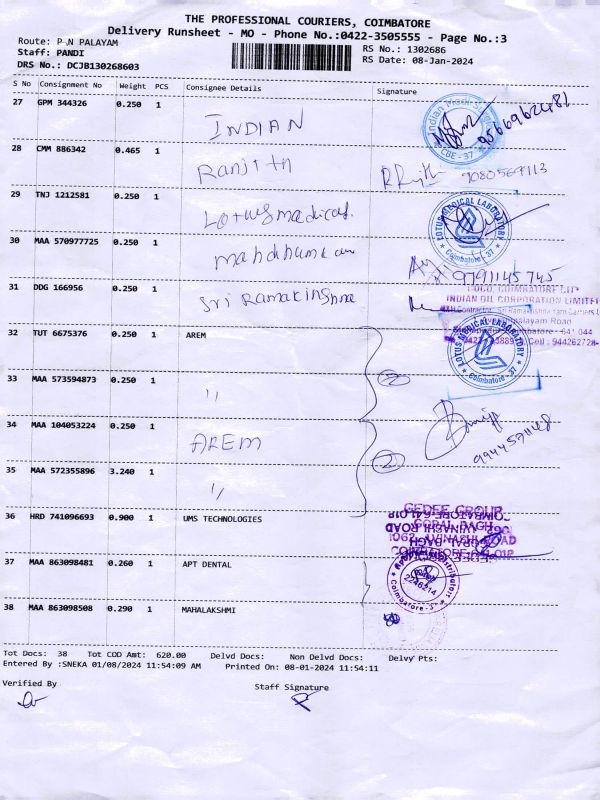 THE PROFESSIONAL COURIERS, COIMBATORE
Delivery Runsheet - MO - Phone No.:0422-3505555 - Page No.:3
Route: P-N PALAYAM
RS No.: 1302686
Staff: PANDI
RS Date: 08-Jan-2024
DRS No.: DCJB130268603
S No Consignment No Weight PCS Consignee Details Signature
27 GPM 344326 0.250 1 INDIAN
28 CMM 886342 0.465 1 Ranjith 9080569113
29 TNJ 1212581 0.250 1 Lotus medical.
LOTUS MEDICAL LABORATORY
Coimbatore - 37
30 MAA 570977725 0.250 1
9791145745
31 DDG 166956 0.250 1 Sri Ramakrishna
INDIAN OIL CORPORATION LIMITED
32 TUT 6675376 0.250 1 AREM
LOTUS MEDICAL LABORATORY
Coimbatore - 37
33 MAA 573594873 0.250 1 〃 2
34 MAA 104053224 0.250 1 AREM
35 MAA 572355896 3.240 1 〃 2
36 HRD 741096693 0.900 1 UMS TECHNOLOGIES
GEDEE GROUP
GOPAL BAGH
1062, AVINASHI ROAD
COIMBATORE-641 018
37 MAA 863098481 0.260 1 APT DENTAL
2246214
38 MAA 863098508 0.290 1 MAHALAKSHMI
Tot Docs: 38 Tot COD Amt: 620.00 Delvd Docs: Non Delvd Docs: Delvy Pts:
Entered By :SNEKA 01/08/2024 11:54:09 AM Printed On: 08-01-2024 11:54:11
Verified By Staff Signature